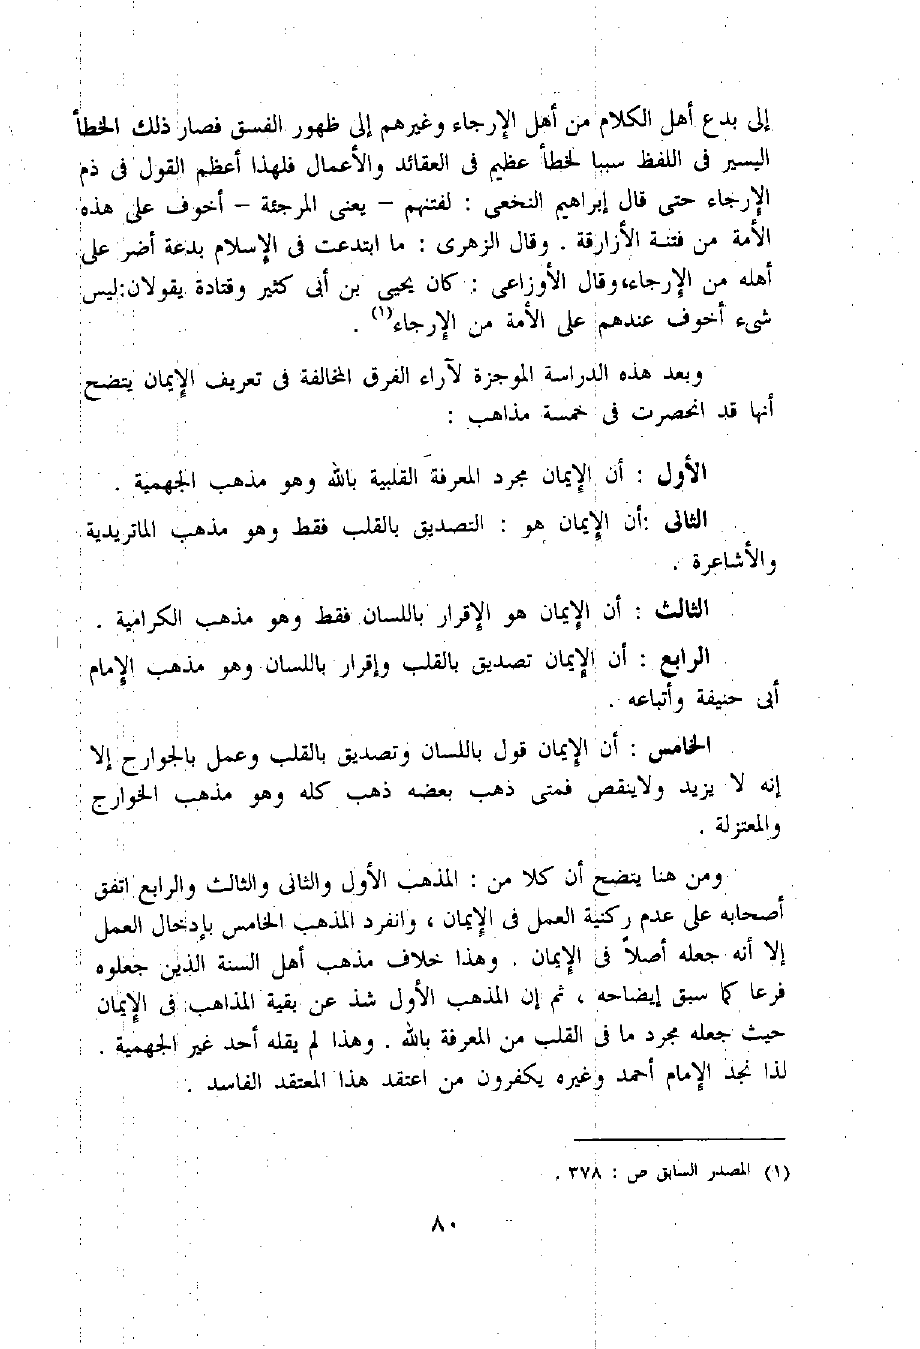 إلى بدع أهل الكلام من أهل الإرجاء وغيرهم إلى ظهور الفسق فصار ذلك الخطأ
اليسير فى اللفظ سببا لخطأ عظيم فى العقائد والأعمال فلهذا أعظم القول فى ذم
الإرجاء حتى قال إبراهيم النخعى : لفتنهم – يعنى المرجئة – أخوف على هذه
الأمة من فتنة الأزارقة . وقال الزهرى : ما ابتدعت فى الإسلام بدعة أضر على
أهله من الإرجاء، وقال الأوزاعى : كان يحيى بن أبى كثير وقتادة يقولان: ليس
شىء أخوف عندهم على الأمة من الإرجاء(١) .
وبعد هذه الدراسة الموجزة لآراء الفرق المخالفة فى تعريف الإيمان يتضح
أنها قد انحصرت فى خمسة مذاهب :
الأول : أن الإيمان مجرد المعرفة القلبية بالله وهو مذهب الجهمية .
الثانى :أن الإيمان هو : التصديق بالقلب فقط وهو مذهب الماتريدية
والأشاعرة .
الثالث : أن الإيمان هو الإقرار باللسان فقط وهو مذهب الكرامية .
الرابع : أن الإيمان تصديق بالقلب وإقرار باللسان وهو مذهب الإمام
أبى حنيفة وأتباعه .
الخامس : أن الإيمان قول باللسان وتصديق بالقلب وعمل بالجوارح إلا
إنه لا يزيد ولاينقص فمتى ذهب بعضه ذهب كله وهو مذهب الخوارج
والمعتزلة .
ومن هنا يتضح أن كلا من : المذهب الأول والثانى والثالث والرابع اتفق
أصحابه على عدم ركنية العمل فى الإيمان ، وانفرد المذهب الخامس بإدخال العمل
إلا أنه جعله أصلاً فى الإيمان . وهذا خلاف مذهب أهل السنة الذين جعلوه
فرعا كما سبق إيضاحه ، ثم إن المذهب الأول شذ عن بقية المذاهب فى الإيمان
حيث جعله مجرد ما فى القلب من المعرفة بالله . وهذا لم يقله أحد غير الجهمية .
لذا نجد الإمام أحمد وغيره يكفرون من اعتقد هذا المعتقد الفاسد .
(١) المصدر السابق ص : ٣٧٨ .
٨٠